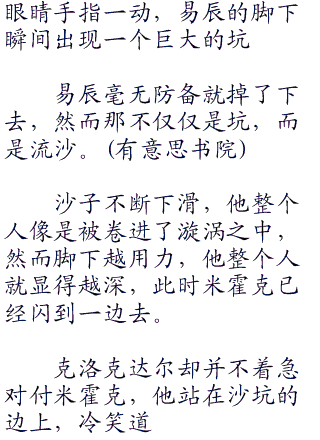 眼睛手指一动，易辰的脚下
瞬间出现一个巨大的坑
易辰毫无防备就掉了下
去，然而那不仅仅是坑，而
是流沙。(有意思书院)
沙子不断下滑，他整个
人像是被卷进了漩涡之中，
然而脚下越用力，他整个人
就显得越深，此时米霍克已
经闪到一边去。
克洛克达尔却并不着急
对付米霍克，他站在沙坑的
边上，冷笑道